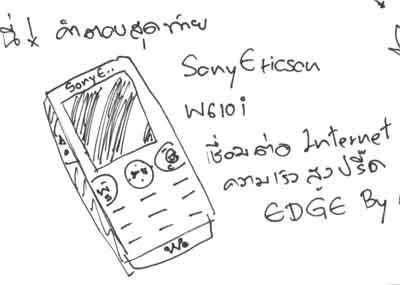 นี่! คำตอบสุดท้าย
SonyE..
SonyEricsson
W610i
เชื่อมต่อ Internet
ความเร็วสูงปรี๊ด
EDGE By